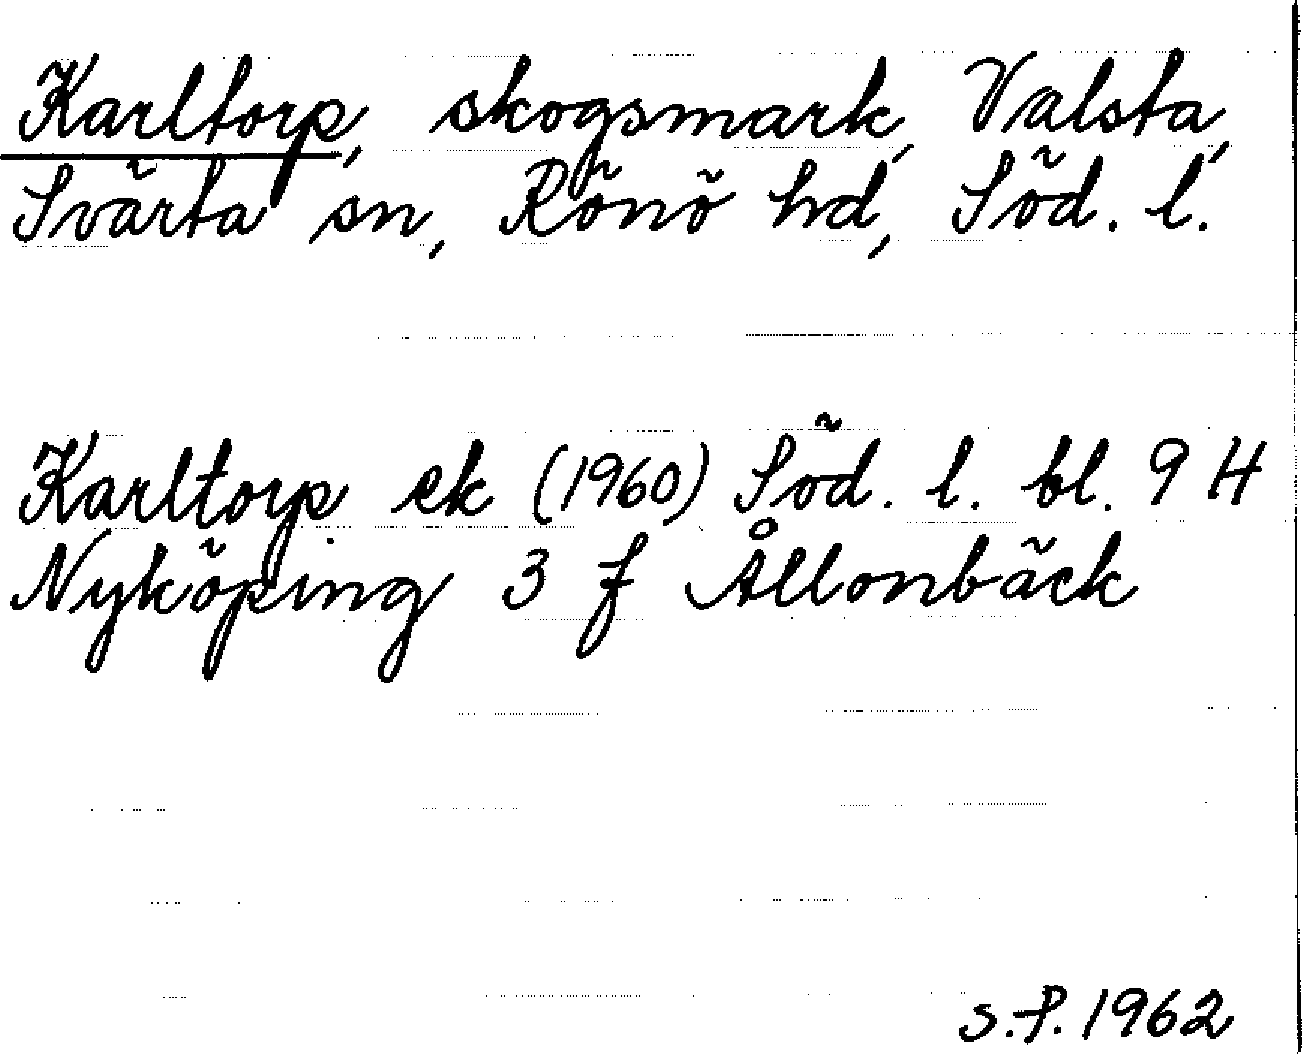 Karltorp, skogsmark, Valsta,
Svärta sn, Rönö hd, Söd. l.
Karltorp ek (1960) Söd. l. bl. 9 H
Nyköping 3 f Ållonbäck
S.P. 1962